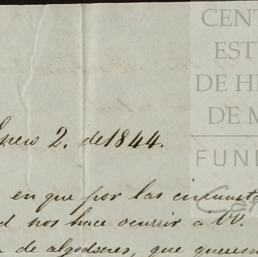 CENT
EST
DE H
DE M
FUN
Enero 2. de 1844.
en que por las circunst
d nos hace ocurrir á VV.
de algodones, que quer